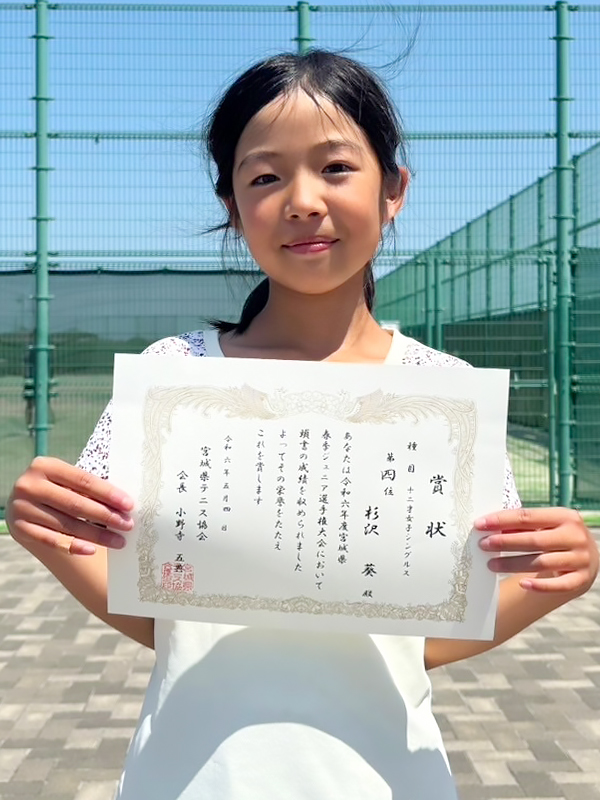 賞状
種目 十二才女子シングルス
第四位
杉沢 葵 殿
あなたは令和六年度宮城県
春季ジュニア選手権大会において
頭書の成績を収められました
よってその栄誉をたたえ
これを賞します
令和六年五月四日
宮城県テニス協会
会長 小野寺 五